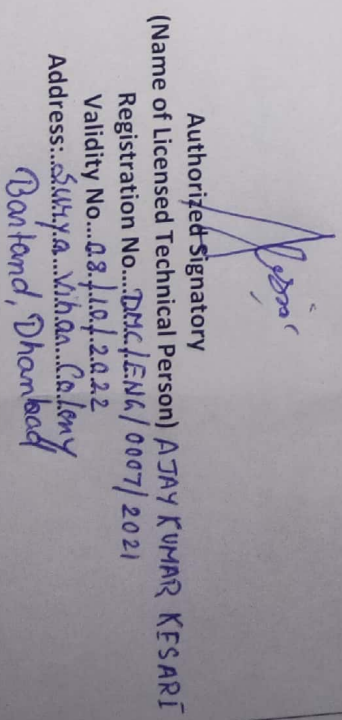 Authorized Signatory
(Name of Licensed Technical Person) AJAY KUMAR KESARI
Registration No....DMC/ENG/0007/2021
Validity No....08/10/2022
Address:..Surya Vihar Colony
Bartand, Dhanbad